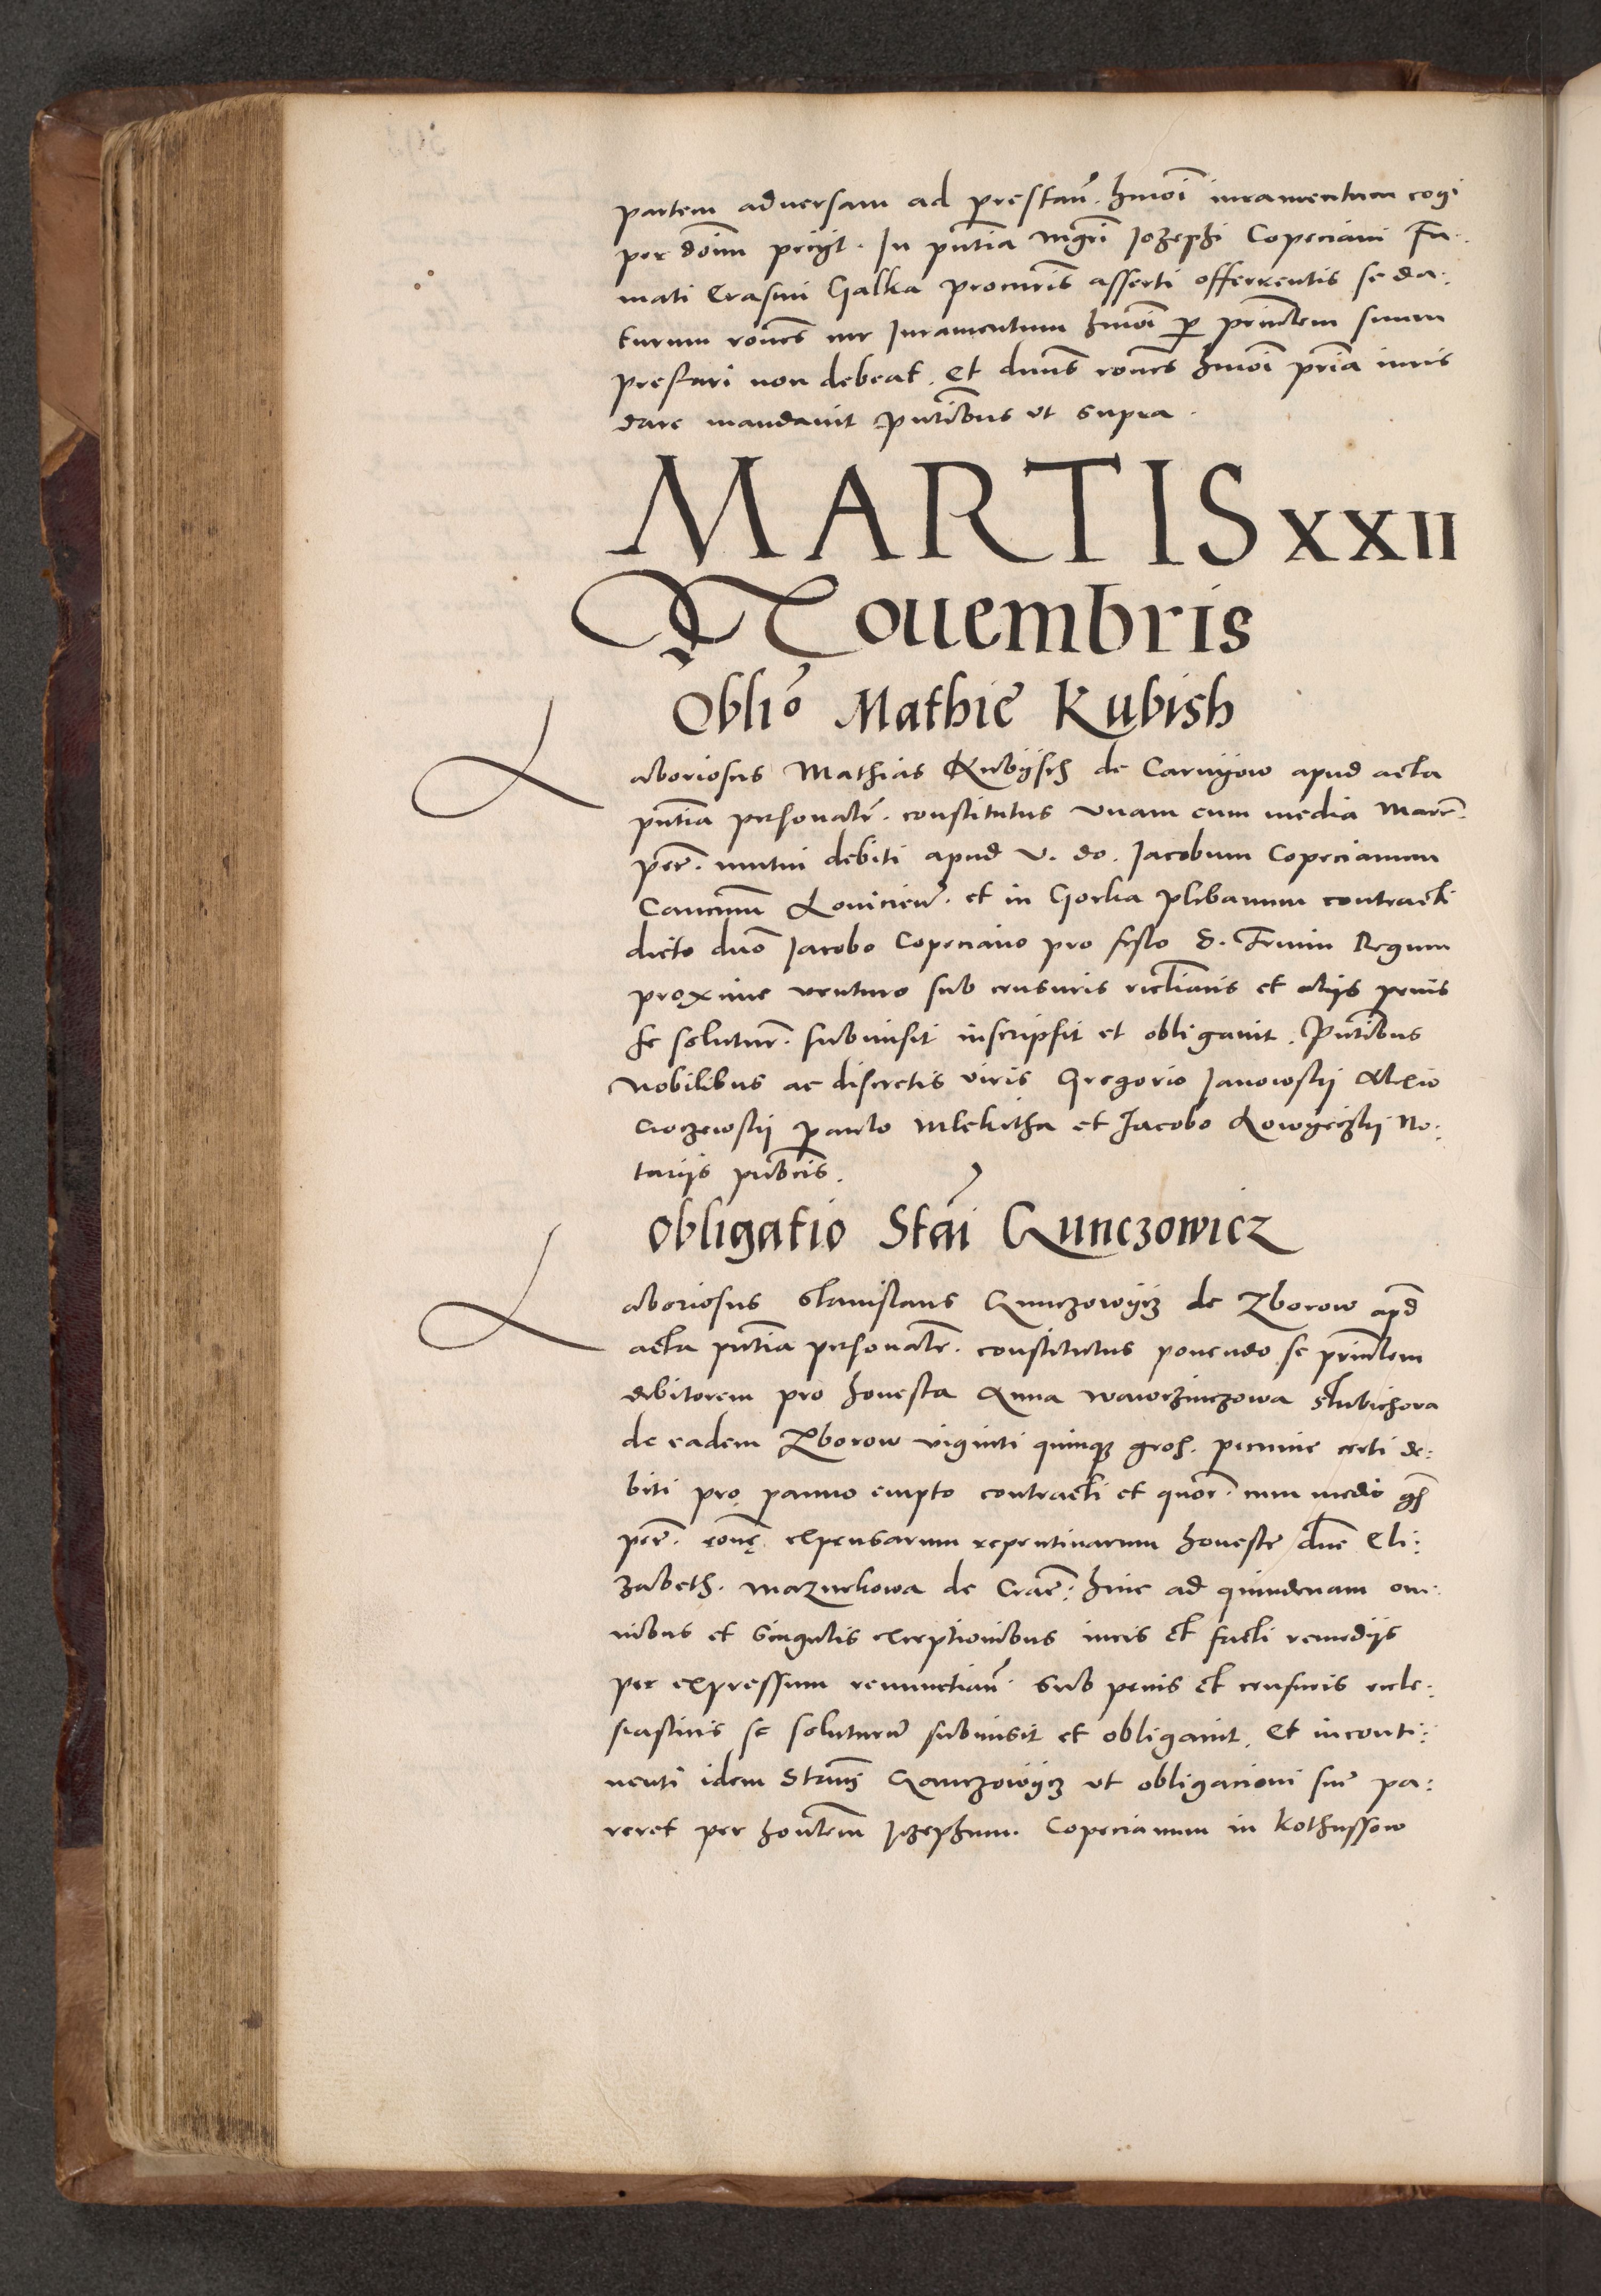 partem aduersam ad prestan̄. hmōi iuramentum cogi
per doīm pecijt. In pn̄tia mgrī Jozephi Copeciani Fa-
mati Erasmi Galka procuris̄ asserti offerrentis se da:
turum ronēs cur Juramentum hmōi per prin̄lem suum
prestari non debeat. et dnus̄ ronēs hmōi pria iuris
dare mandauit pn̄tibus vt supra.
MARTIS XXII
Nouembris
Oblio Mathie Kubish
Laboriosus Mathias Kubijsch de Carnijow apud acta
pn̄tia personalr̄. constitutus vnam cum media Marc̄.
pec̄. mutui debiti apud v. do. Jacobum Copecianum
Canc̄num Louicien̄. et in Gorka plebanum contracti
dicto dno Jacobo Copeciano pro festo S. Trium Regum
proxime venturo sub censuris ecc̄liaticis et alijs penis
se soluturm̄. submisit inscripsit et obligauit. Pn̄tibus
Nobilibus ac discretis viris Gregorio Janowskij Alexio
paulo Mlekitha et Jacobo No:
tarijs pub̄cis.
Obligatio Stai Qunczowicz
Laboriosus Stanislaus Qunczowijcz de Zborow apd̄
acta pn̄tia personalr̄. constitutus ponendo se prin̄lem
debitorem pro honesta Anna Wawrzinczowa
de eadem Zborow viginti quinqȝ gros. pecunie certi de:
biti pro panno empto contracti et quor̄. cum medio gs
pec̄. ronē expensarum repentinarum honeste dne Eli:
zabeth. Mazurkowa de Crac̄: hinc ad quindenam om:
nibus et singulis exceptionibus iuris et facti remedijs
per expressum renunctian̄. sub penis et censuris eccle:
siasticis se soluturum̄ submisit et obligauit. Et inconti:
nenti idem Stanis̄ Qanczowijcz vt obligacioni sue pa:
reret per hon̄lem Jozephum. Copecianum in Kothussow